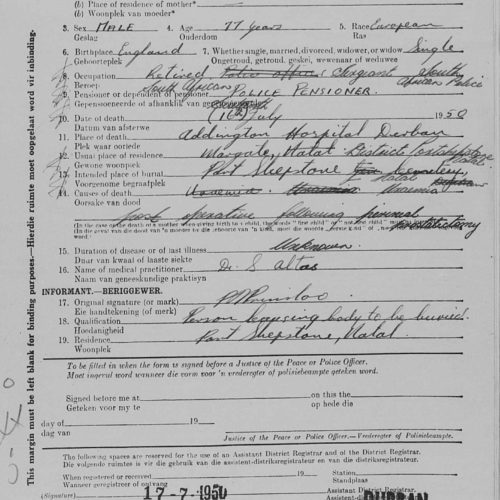 (a) Place of residence of mother*
(b) Woonplek van moeder*
3. Sex MALE 4. Age 77 years 5. Race European
Geslag Ouderdom Ras
6. Birthplace England 7. Whether single, married, divorced, widower, or widow Single
Geboorteplek Ongetroud, getroud, geskei, wewenaar of weduwee
8. Occupation Retired Police officer Sergeant South African Police
Beroep South African
9. Pensioner or dependent of pensioner POLICE PENSIONER.
Gepensioeneerde of afhanklik van
10. Date of death (16th) July 1950
Datum van afsterwe
11. Place of death Addington Hospital Durban
Plek waar oorlede
12. Usual place of residence Margate, Natal District Port Shepstone Natal
Gewone woonplek
13. Intended place of burial Port Shepstone Cemetery
Voorgenome begraafplek
14. Causes of death Uraemia Uraemia
Oorsake van dood
post operative following prostatectomy
(In the case of the death of a mother when giving birth to a child, the words
word.)
15. Duration of disease or of last illness Unknown
Duur van kwaal of laaste siekte
16. Name of medical practitioner Dr. S. Altas
Naam van geneeskundige praktisyn
INFORMANT.—BERIGGEWER.
17. Original signature (or mark)
Eie handtekening (of merk)
18. Qualification Person causing body to be buried
Hoedanigheid
19. Residence Port Shepstone, Natal
Woonplek
To be filled in when the form is signed before a Justice of the Peace or Police Officer.
Moet ingevul word wanneer die vorm voor 'n vrederegter of polisiebeampte geteken word.
Signed before me at on this the
Geteken voor my te op hede die
day of 19
dag van
Justice of the Peace or Police Officer.—Vrederegter of Polisiebeampte.
The following spaces are reserved for the use of an Assistant District Registrar and of the District Registrar.
Die volgende ruimtes is vir die gebruik van die assistent-distriksregistrateur en van die distriksregistrateur.
When registered or received 19 Station
Wanneer geregistreer of ontvang Standplaas
17-7-1950 DURBAN
(Signature) Assistant District Registrar
Assistent-
This margin must be left blank for binding purposes.—Hierdie ruimte moet oopgelaat word vir inbinding.